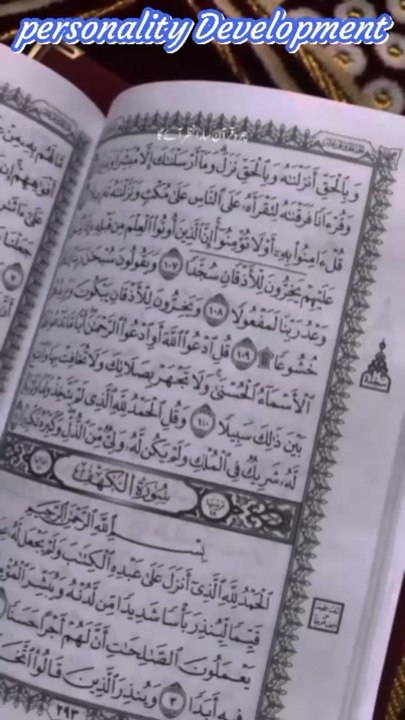 personality Development
وَبِالْحَقِّ أَنزَلْنَٰهُ وَبِالْحَقِّ نَزَلَ وَمَا أَرْسَلْنَٰكَ إِلَّا مُبَشِّرًا
وَقُرْءَانًا فَرَقْنَٰهُ لِتَقْرَأَهُ عَلَى النَّاسِ عَلَىٰ مُكْثٍ وَنَزَّلْنَٰهُ
قُلْ ءَامِنُوا بِهِ أَوْ لَا تُؤْمِنُوا إِنَّ الَّذِينَ أُوتُوا الْعِلْمَ مِن قَبْلِهِ
عَلَيْهِمْ يَخِرُّونَ لِلْأَذْقَانِ سُجَّدًا ١٠٧ وَيَقُولُونَ سُبْحَٰنَ
وَعْدُ رَبِّنَا لَمَفْعُولًا ١٠٨ وَيَخِرُّونَ لِلْأَذْقَانِ يَبْكُونَ
خُشُوعًا ١٠٩ قُلِ ادْعُوا اللَّهَ أَوِ ادْعُوا الرَّحْمَٰنَ أَيًّا مَّا
الْأَسْمَاءُ الْحُسْنَىٰ وَلَا تَجْهَرْ بِصَلَاتِكَ وَلَا تُخَافِتْ بِهَا
بَيْنَ ذَٰلِكَ سَبِيلًا ١١٠ وَقُلِ الْحَمْدُ لِلَّهِ الَّذِي لَمْ يَتَّخِذْ وَلَدًا
لَّهُ شَرِيكٌ فِي الْمُلْكِ وَلَمْ يَكُن لَّهُ وَلِيٌّ مِّنَ الذُّلِّ وَكَبِّرْهُ تَكْبِيرًا
سُورَةُ الْكَهْفِ
بِسْمِ اللَّهِ الرَّحْمَٰنِ الرَّحِيمِ
الْحَمْدُ لِلَّهِ الَّذِي أَنزَلَ عَلَىٰ عَبْدِهِ الْكِتَٰبَ وَلَمْ يَجْعَل لَّهُ
قَيِّمًا لِّيُنذِرَ بَأْسًا شَدِيدًا مِّن لَّدُنْهُ وَيُبَشِّرَ
يَعْمَلُونَ الصَّٰلِحَٰتِ أَنَّ لَهُمْ أَجْرًا حَسَنًا
فِيهِ أَبَدًا ٣ وَيُنذِرَ الَّذِينَ قَالُوا
٢٩٣